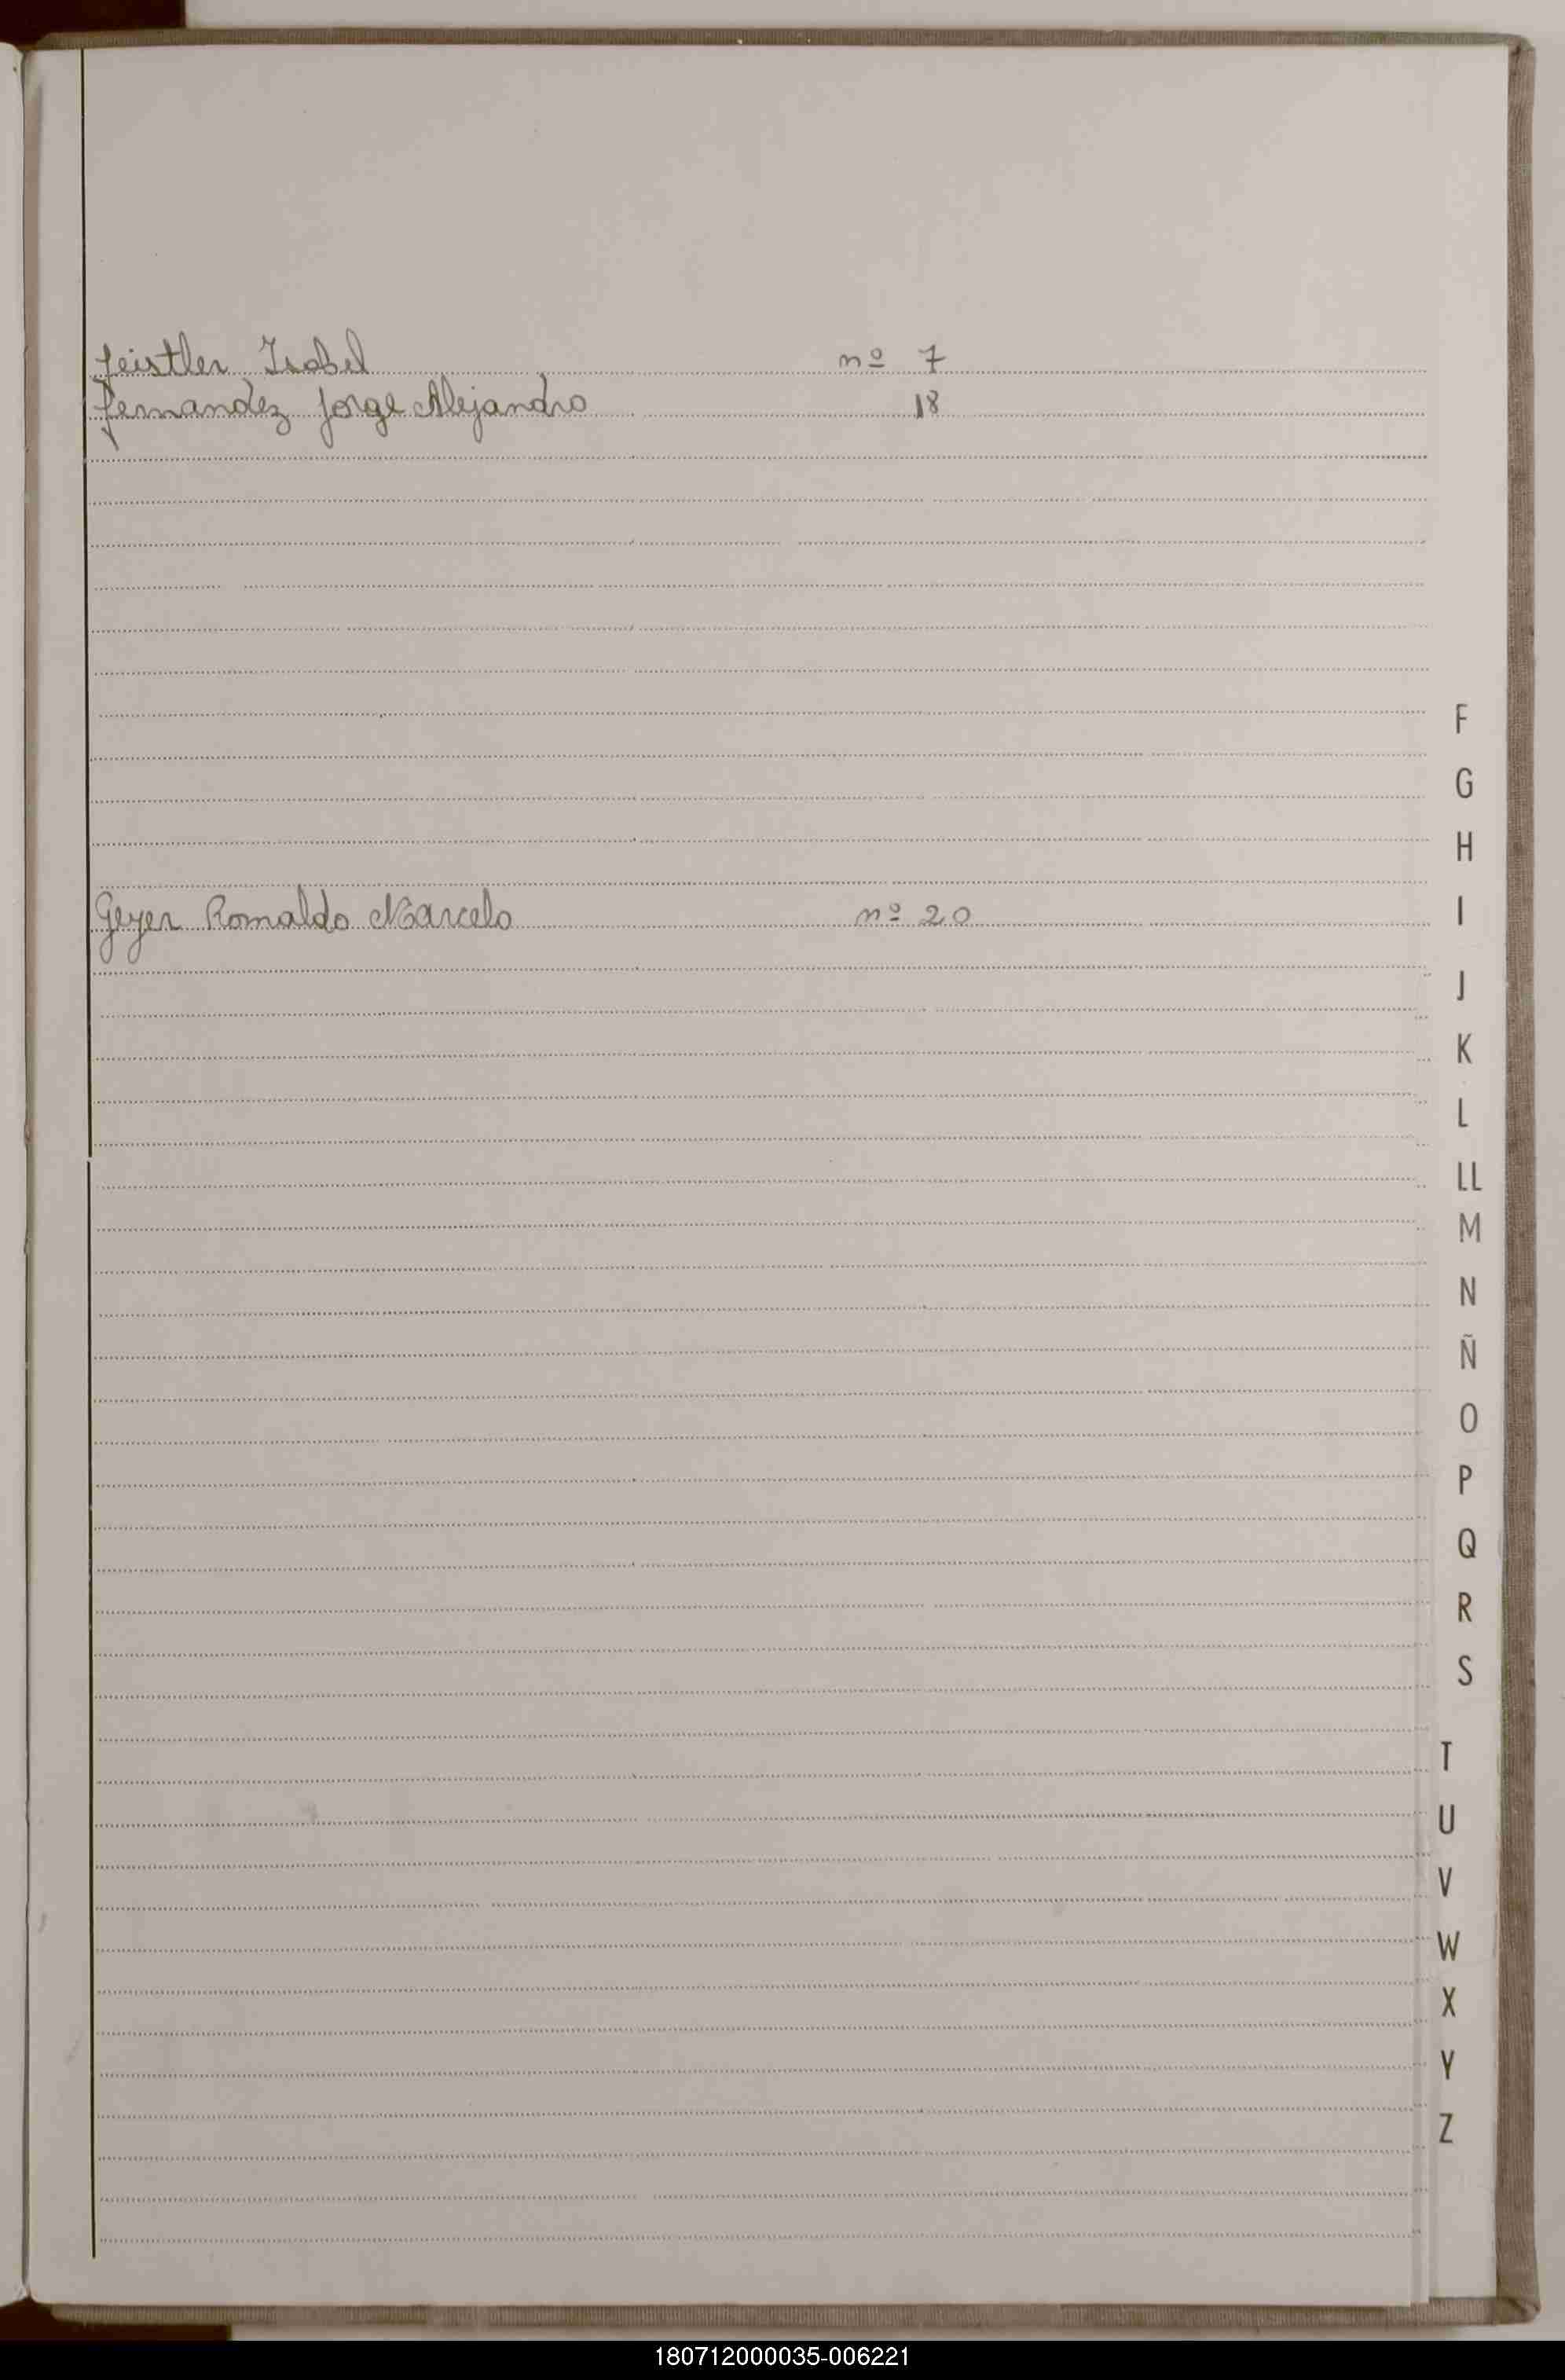 Feistler Isabel nº 7
Fernandez Jorge Alejandro 18
F
G
H
Geyer Romaldo Marcelo nº 20
I
J
K
L
LL
M
N
Ñ
O
P
Q
R
S
T
U
V
W
X
Y
Z
180712000035-006221